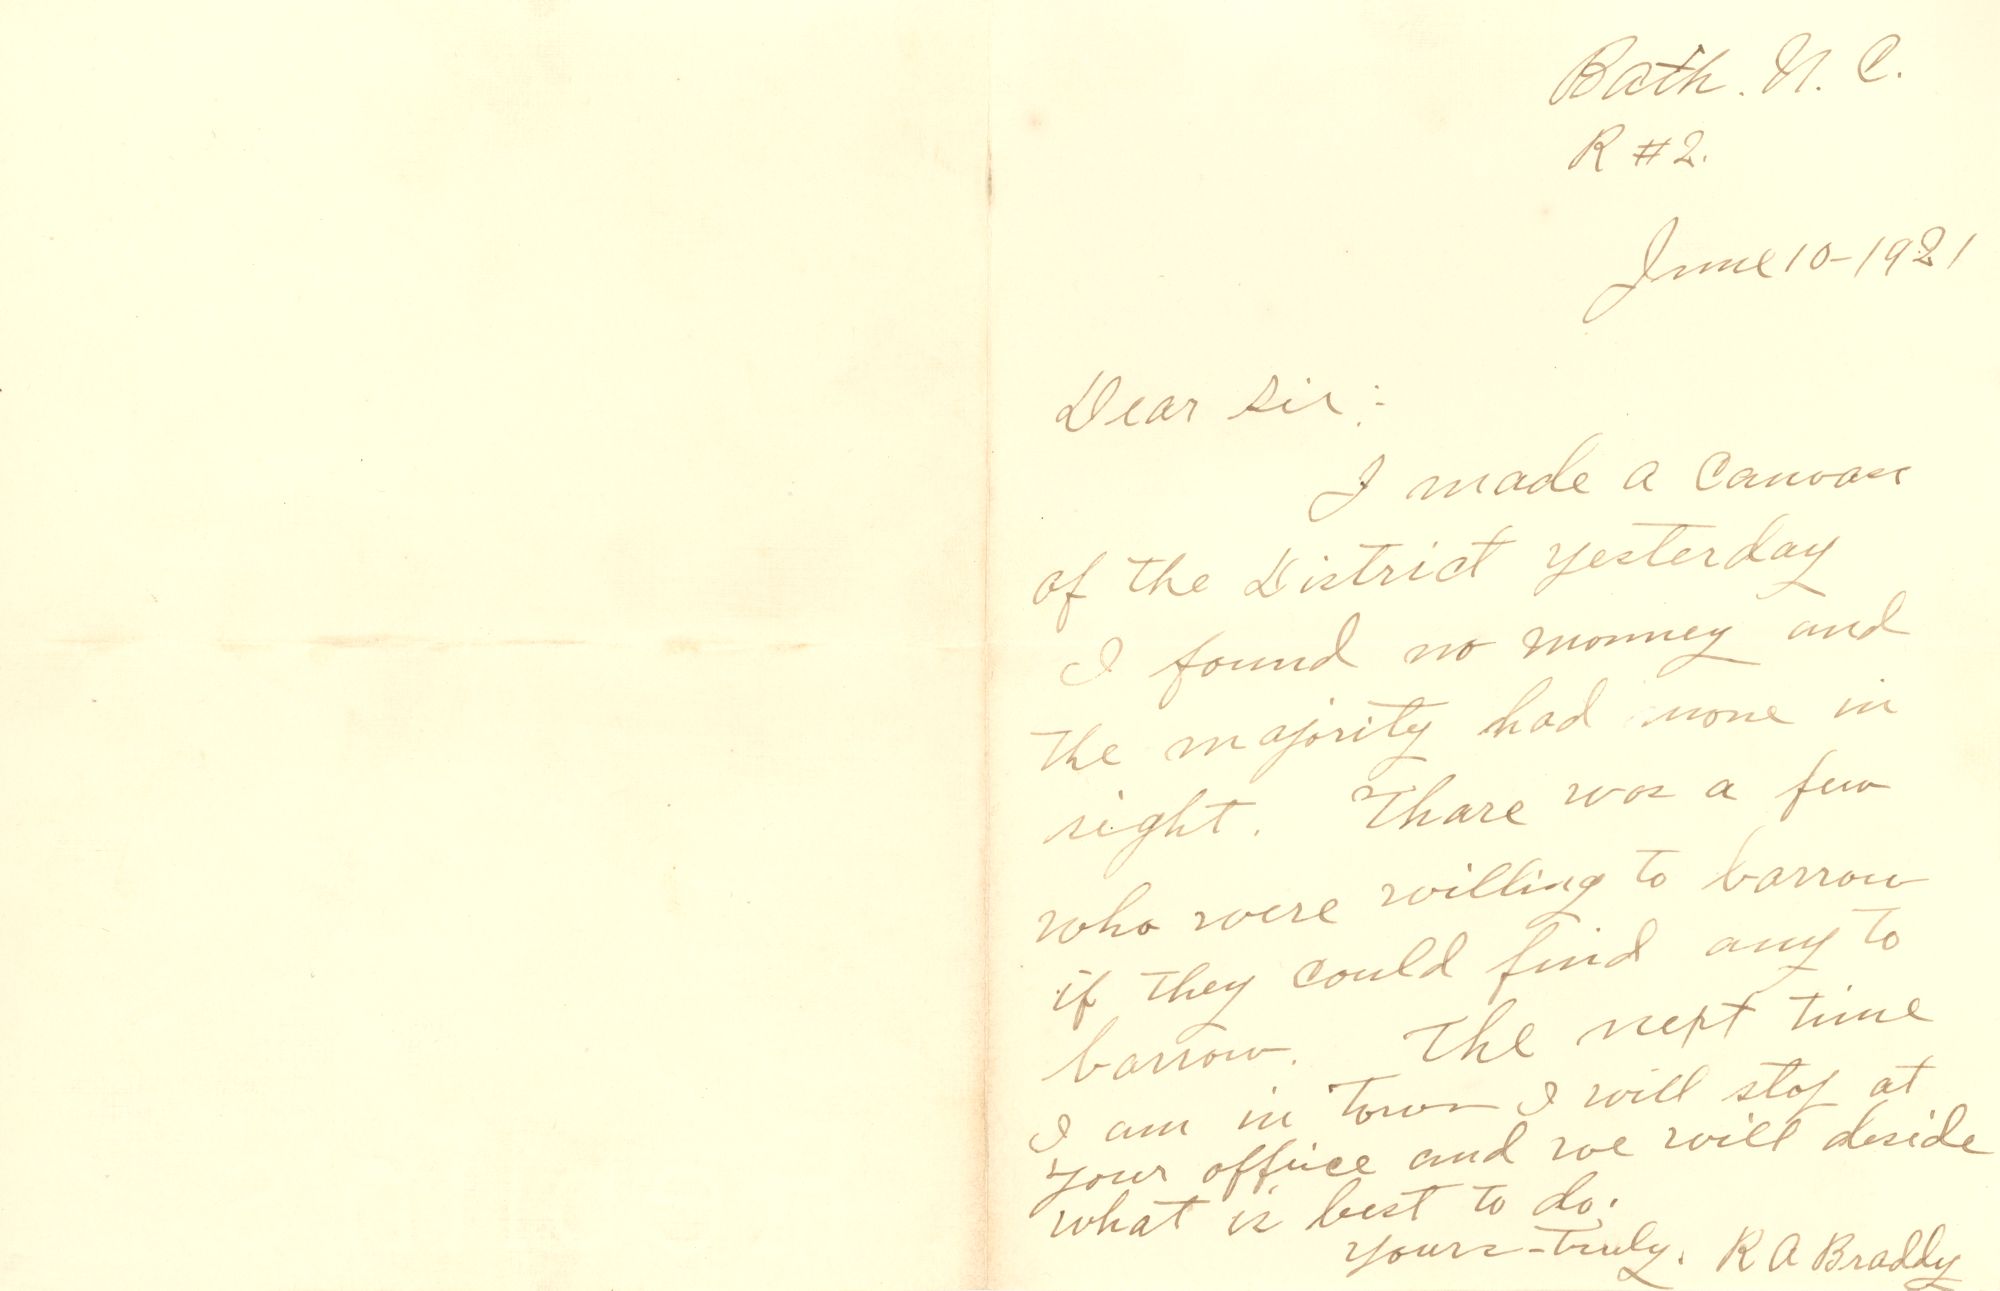 Bath. N. C.
R #2.
June 10-1921
Dear Sir:
I made a Canvass
of the District yesterday
I found no monney and
the majority had none in
sight. Thare was a few
who were willing to barrow
if they could find any to
barrow. The next time
I am in Town I will stop at
your office and we will deside
what is best to do.
yours-truly. R A Braddy